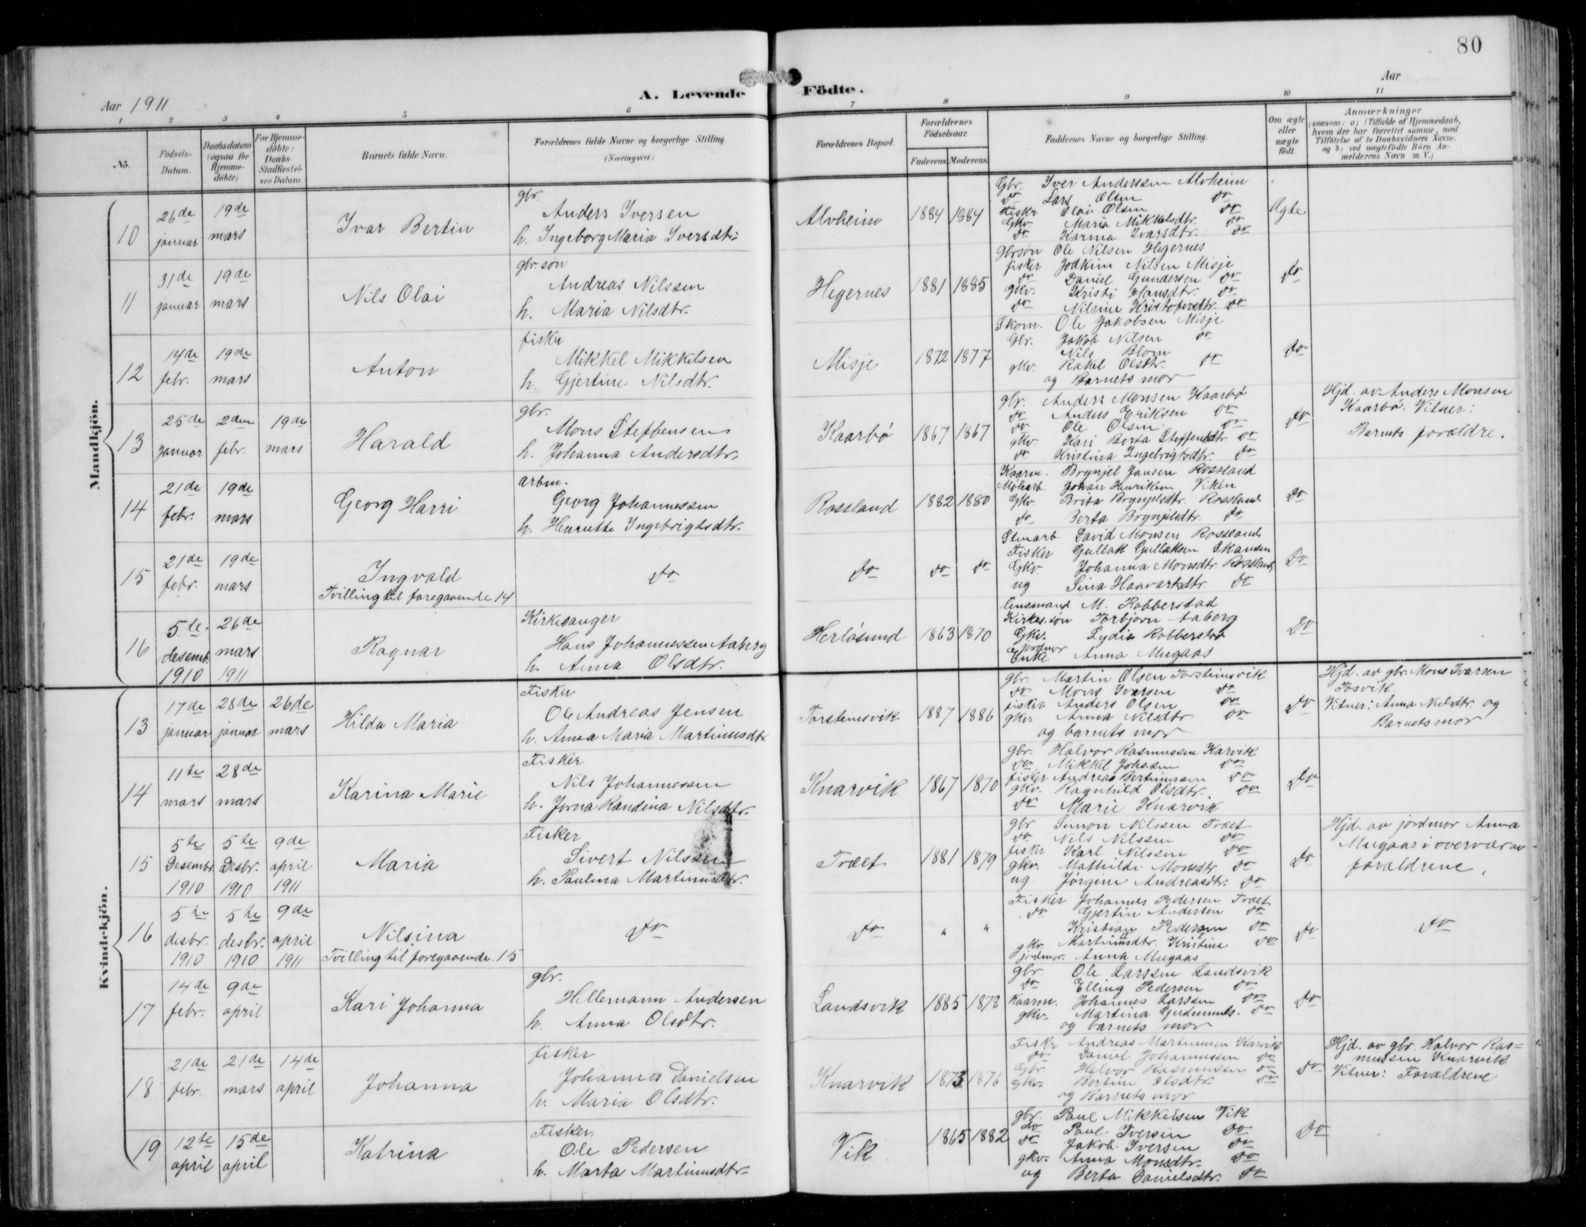 80
Aar 1911
A. Levende Födte.
Aar
1 2 3 4 5 6 7 8 9 10 11
No.
Födsels-Datum.
Daabsdatum (ogsaa for Hjemme-döbte)
For Hjemme-döbte: Daabs Stadfæstel-ses Datum.
Barnets fulde Navn.
Forældrenes fulde Navne og borgerlige Stilling (Næringsvei)
Forældrenes Bopæl.
Forældrenes Födselsaar.
Faderens. Moderens.
Faddernes Navne og borgerlige Stilling.
Om ægte eller uægte födt.
Anmærkninger
(saasom: a) i Tilfælde af Hjemmedaab, hvem der har forrettet samme, med Tilföielse af to Daabsvidners Navne, og b) ved uægtefödte Börn An-melderens Navn m. V.)
Mandkjön.
10
26de januar
19de mars
Ivar Bertin
gbr.
Anders Iversen
h. Ingeborg Maria Iversdtr.
Alvheim
1884 1884
Gbr. Iver Anderssen Alvheim
do Lars Olsen do
Fisker Olai Olsen do
Gkv. Maria Mikkelsdtr. do
do Karina Ivarsdtr. do
Ægte
11
31de januar
19de mars
Nils Olai
gbr. søn
Andreas Nilssen
h. Maria Nilsdtr.
Hegernes
1881 1885
Gbrsøn Ole Nilsen Hegernes
fisker Joakim Nilsen Misje
do Daniel Gundersen do
gkv. Kristi Hansdtr. do
do Nilsine Kristofersdtr. do
do
12
14de febr.
19de mars
Anton
fisker
Mikkel Mikkelsen
h. Gjertine Nilsdtr.
Misje
1872 1877
Skom. Ole Jakobsen Misje
Gbr. Jakob Nilsen do
Nils Blom
gkv. Rakel Olsdtr. do
og Barnets mor
do
13
25de januar
2den febr.
19de mars
Harald
gbr.
Mons Steffensen
h. Johanna Andersdtr.
Kaarbø
1867 1867
gbr. Anders Monsen Kaarbø
do Anders Eriksen do
do Ole Olsen do
gkv. Kari Berta Steffensdtr. do
do Kristina Ingebrigtsdtr. do
do
Hjd. av Anders Monsen
Kaarbø. Vitner:
Barnets forældre.
14
21de febr.
19de mars
Georg Harri
arbm.
Georg Johannessen
h. Henriette Ingebrigtsdtr.
Rossland
1882 1880
Kaarm. Brynjel Jansen Rossland
Johan Henriksen Viken
Gkv. Brita Brynjelsdtr. Rossland
do Berta Brynjelsdtr. do
do
15
21de febr.
19de mars
Ingvald
Tvilling til foregaaende 14
do
do
do do
Stenarb David Monsen Rossland
Fisker Gullak Gullaksen Skansen
Gkv. Johanna Monsdtr. Rossland
ug Sina Haavartsdtr. do
Do
16
5te desemb. 1910
26de mars 1911
Ragnar
Kirkesanger
Hans Johannessen Aaberg
h. Anna Olsdtr.
Herløsund
1863 1870
M. Robberstad
Kirkes.søn Torbjørn Aaberg
Gkv. Lydia Robberstad
jordmor
Enke Anna Mugaas
Do
Kvindekjön.
13
17de januar
28de januar
26de mars
Hilda Maria
Fisker
Ole Andreas Jensen
h. Anna Maria Martinusdtr.
Torsteinsvik
1887 1886
gbr. Martin Olsen Torsteinsvik
do Mons Iversen do
fisker Anders Olsen do
gkv. Anna Nilsdtr do
og barnets mor
do
Hjd. av gbr. Mons Ivarsen
Vitner: Anna Nilsdtr. og
Barnets mor
14
11te mars
28de mars
Karina Marie
Fisker
Nils Johannessen
h. Jorna Randina Nilsdtr.
Knarvik
1867 1870
gbr. Halvor Rasmussen Karvik
do Mikkel Johssen do
fisker Andreas Bertinussen do
gkv. Ragnhild Olsdtr. do
do Marie Knarvik
do
15
5te Desembr 1910
5te Desbr. 1910
9de april 1911
Maria
Fisker
Sivert Nilssen
h. Paulina Martinusdtr.
Træet
1881 1879
gbr Simon Nilssen Træet
do Nils Nilssen do
fisker Karl Nilssen do
gkv. Mathilde Monsdtr. do
ug Jørgine Andreasdtr. do
do
Hjd. av jordmor Anna
Mugaas i overvær av
forældrene.
16
5te desbr. 1910
5te desbr. 1910
9de april 1911
Nilsina
Tvilling til foregaaende. 15
do
do
" "
Fisker Johannes Pedersen Træet
do Gjertin Andersen do
Kristian Pedersen do
gkv. Martinusdtr. Kristine do
Jordmor. Anna Mugaas
do
do
17
14de febr.
9de april
Kari Johanna
gbr.
Hellemann Andersen
h. Anna Olsdtr.
Landsvik
1885 1872
gbr. Ole Larssen Landsvik
do Elling Pedersen do
Kaarm. Johannes Larssen do
gkv. Martina Gudmunds. do
og barnets mor
do
18
21de febr.
21de mars
14de april
Johanna
fisker
Johannes Danielsen
h. Maria Olsdtr.
Knarvik
1873 1876
Fisker Andreas Martinussen Karvik
do Daniel Johannessen do
Gbr. Halvor Rasmussen do
gkv. Bertine Olsdtr. do
og Barnets mor
do
Hjd. av gbr. Halvor Ras=
mussen Knarvik
Vitner: Forældrene
19
12te april
15de april
Katrina
Fisker
Ole Pedersen
h. Marta Martinusdtr.
Vik
1865 1882
gbr. Paul Mikkelsen Vik
do Paul Iversen do
do Jakob Iversen do
gkv. Anna Monsdtr. do
ug Berta Danielsdtr. do
Do